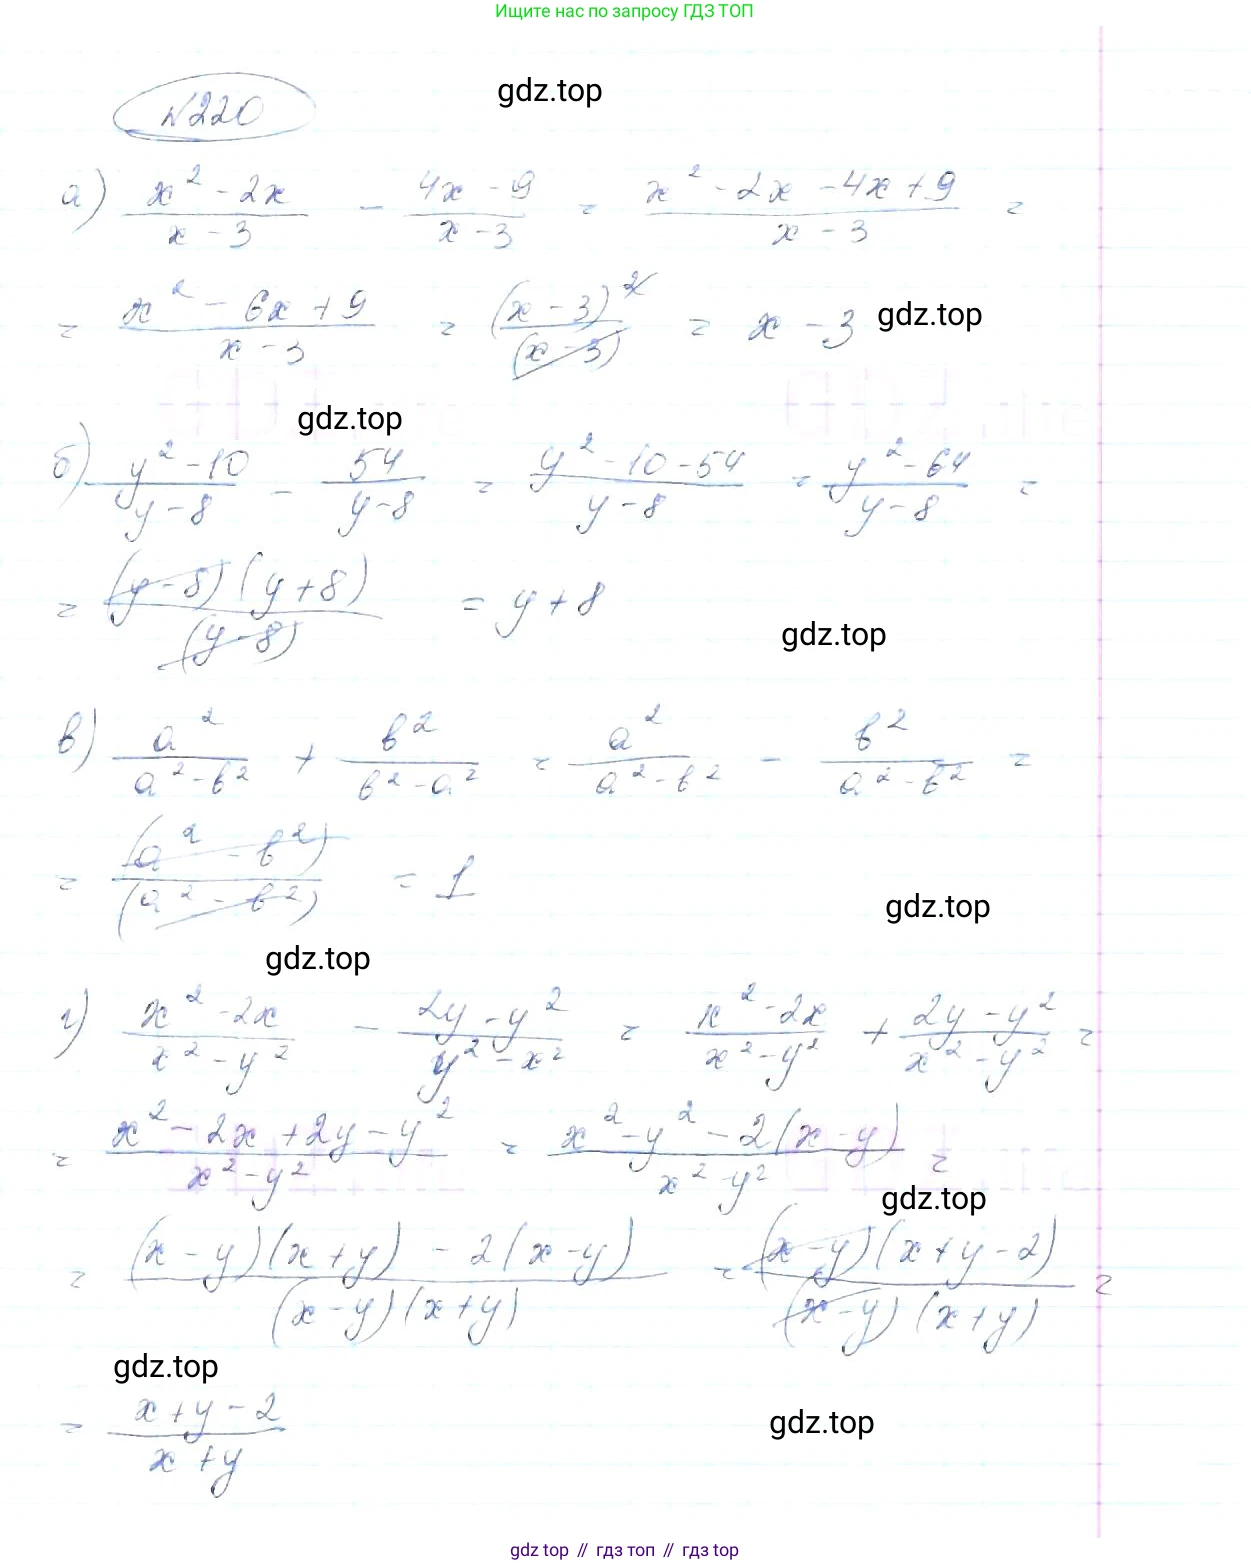 Ищите нас по запросу ГДЗ ТОП
gdz.top
№220
а) (x² - 2x)/(x - 3) - (4x - 9)/(x - 3) = (x² - 2x - 4x + 9)/(x - 3) =
= (x² - 6x + 9)/(x - 3) = (x - 3)²/(x - 3) = x - 3 gdz.top
gdz.top
б) (y² - 10)/(y - 8) - 54/(y - 8) = (y² - 10 - 54)/(y - 8) = (y² - 64)/(y - 8) =
= (y - 8)(y + 8)/(y - 8) = y + 8
gdz.top
в) a²/(a² - b²) + b²/(b² - a²) = a²/(a² - b²) - b²/(a² - b²) =
= (a² - b²)/(a² - b²) = 1
gdz.top
gdz.top
г) (x² - 2x)/(x² - y²) - (2y - y²)/(y² - x²) = (x² - 2x)/(x² - y²) + (2y - y²)/(x² - y²) =
= (x² - 2x + 2y - y²)/(x² - y²) = (x² - y² - 2(x - y))/(x² - y²) =
gdz.top
= ((x - y)(x + y) - 2(x - y))/((x - y)(x + y)) = (x - y)(x + y - 2)/((x - y)(x + y)) =
gdz.top
= (x + y - 2)/(x + y)
gdz.top
gdz.top // гдз топ // гдз top